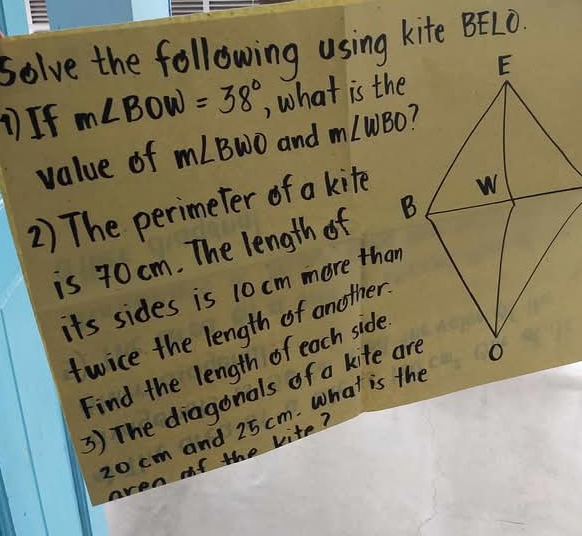 Solve the following using kite BELO.
1) If m∠BOW = 38°, what is the
value of m∠BWO and m∠WBO?
2) The perimeter of a kite
is 70 cm. The length of
its sides is 10 cm more than
twice the length of another.
Find the length of each side.
3) The diagonals of a kite are
20 cm and 25 cm. what is the
area of the kite?
E
B
W
O